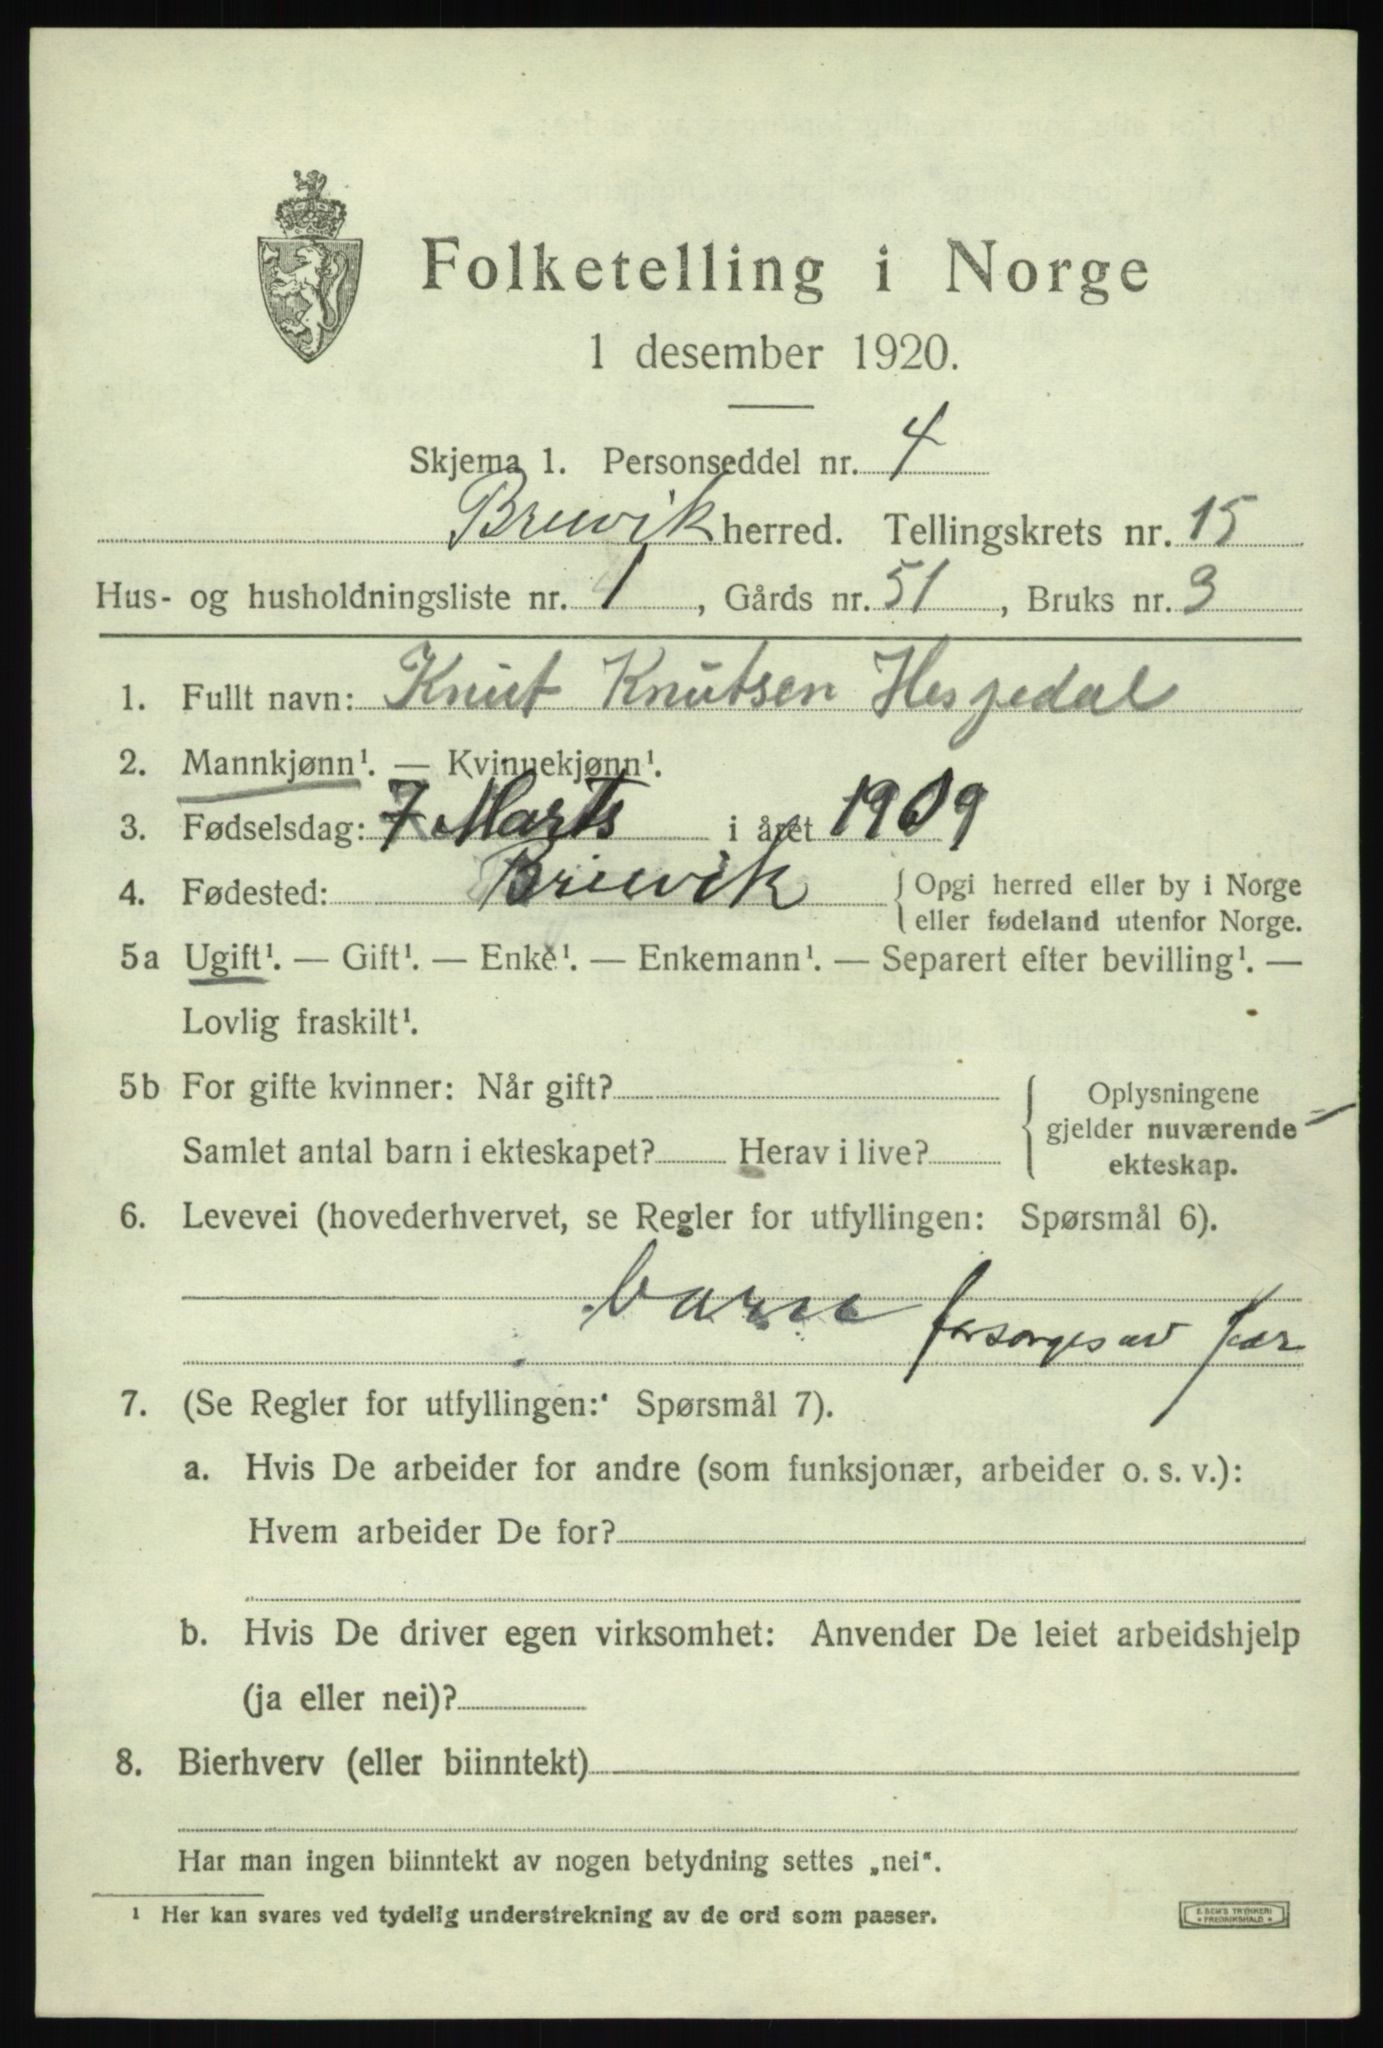 Folketelling i Norge
1 desember 1920.
Skjema 1. Personseddel nr. 4
Bruvik herred. Tellingskrets nr. 15
Hus- og husholdningsliste nr. 1, Gårds nr. 51, Bruks nr. 3
1. Fullt navn: Knut Knutsen Hesjedal
2. Mannkjønn¹. — Kvinnekjønn¹.
3. Fødselsdag: 7 Marts i året 1909
4. Fødested: Bruvik {Opgi herred eller by i Norge
eller fødeland utenfor Norge.
5a Ugift¹. — Gift¹. — Enke¹. — Enkemann¹. — Separert efter bevilling¹. —
Lovlig fraskilt¹.
5b For gifte kvinner: Når gift? { Oplysningene
gjelder nuværende
Samlet antal barn i ekteskapet? Herav i live?
ekteskap.
6. Levevei (hovederhvervet, se Regler for utfyllingen: Spørsmål 6).
barn forsorges av Far
7. (Se Regler for utfyllingen: Spørsmål 7).
a. Hvis De arbeider for andre (som funksjonær, arbeider o. s. v.):
Hvem arbeider De for?
b. Hvis De driver egen virksomhet: Anvender De leiet arbeidshjelp
(ja eller nei)?
8. Bierhverv (eller biinntekt)
Har man ingen biinntekt av nogen betydning settes „nei".
¹ Her kan svares ved tydelig understrekning av de ord som passer.
E. SEM'S TRYKKERI
* FREDRIKSHALD *